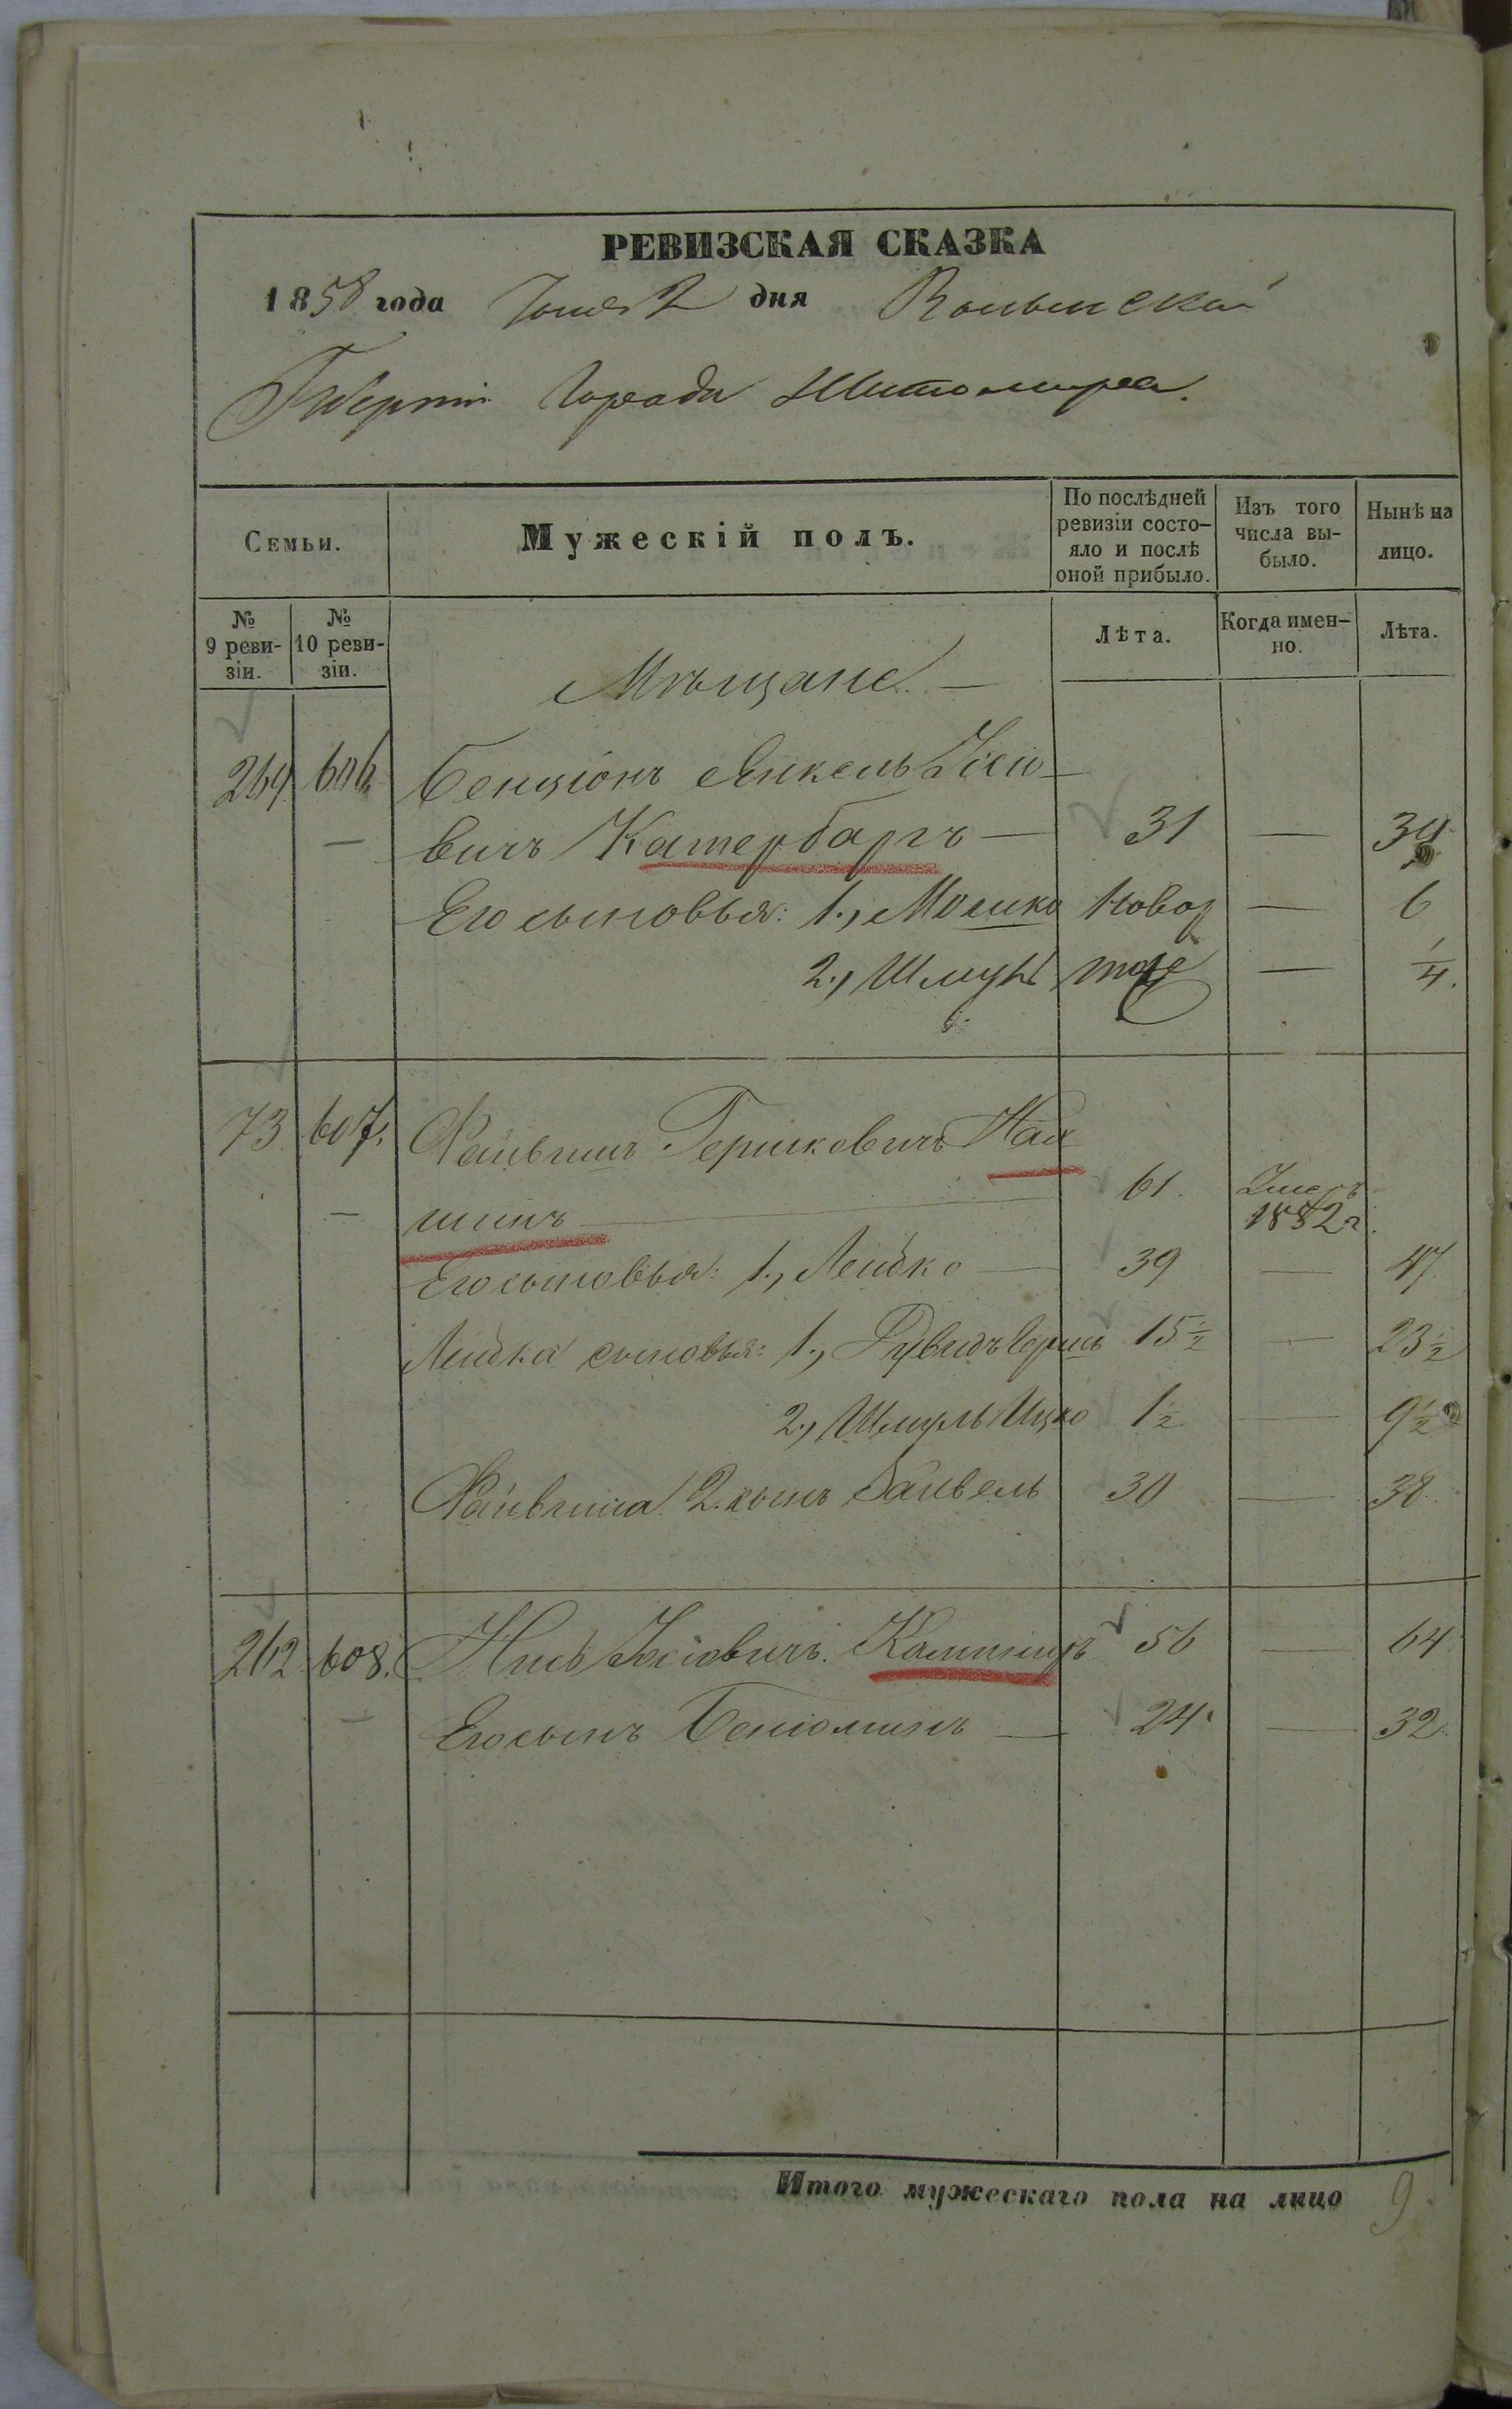 РЕВИЗСКАЯ СКАЗКА
1858 года Іюня 2 дня Волынской
Губерніи Города Житомира.
Семьи.
Мужескій полъ.
По послѣдней ревизіи состо-
яло и послѣ
оной прибыло.
Изъ того
числа вы-
было.
Нынѣ на
лицо.
№
9 реви-
зіи.
№
10 реви-
зіи.
Лѣта.
Когда имен-
но.
Лѣта.
Мѣщане. —
264 606 Бенціонъ Янкель Іосіо-
— вичъ Катербаргъ — 31 — 39
Его сыновья: 1., Мошко новор — 6
2., Шмуль тоже — 1/4.
73. 607. Файвишъ Гершковичъ
— 61. Умеръ
1852 г.
Его сыновья: 1., Лейбко — 39 — 47.
Лейбка сыновья: 1., Рувидъ Гершъ 15 1/2 — 23 1/2
2., Шмуль Ицко 1 1/2 — 9 1/2
Файвиша 2. сынъ Зайвель 30 — 38.
262. 608. Іосіовичъ. 56 — 64.
— Его сынъ Беніоминъ — 24. — 32.
Итого мужескаго пола на лицо 9.